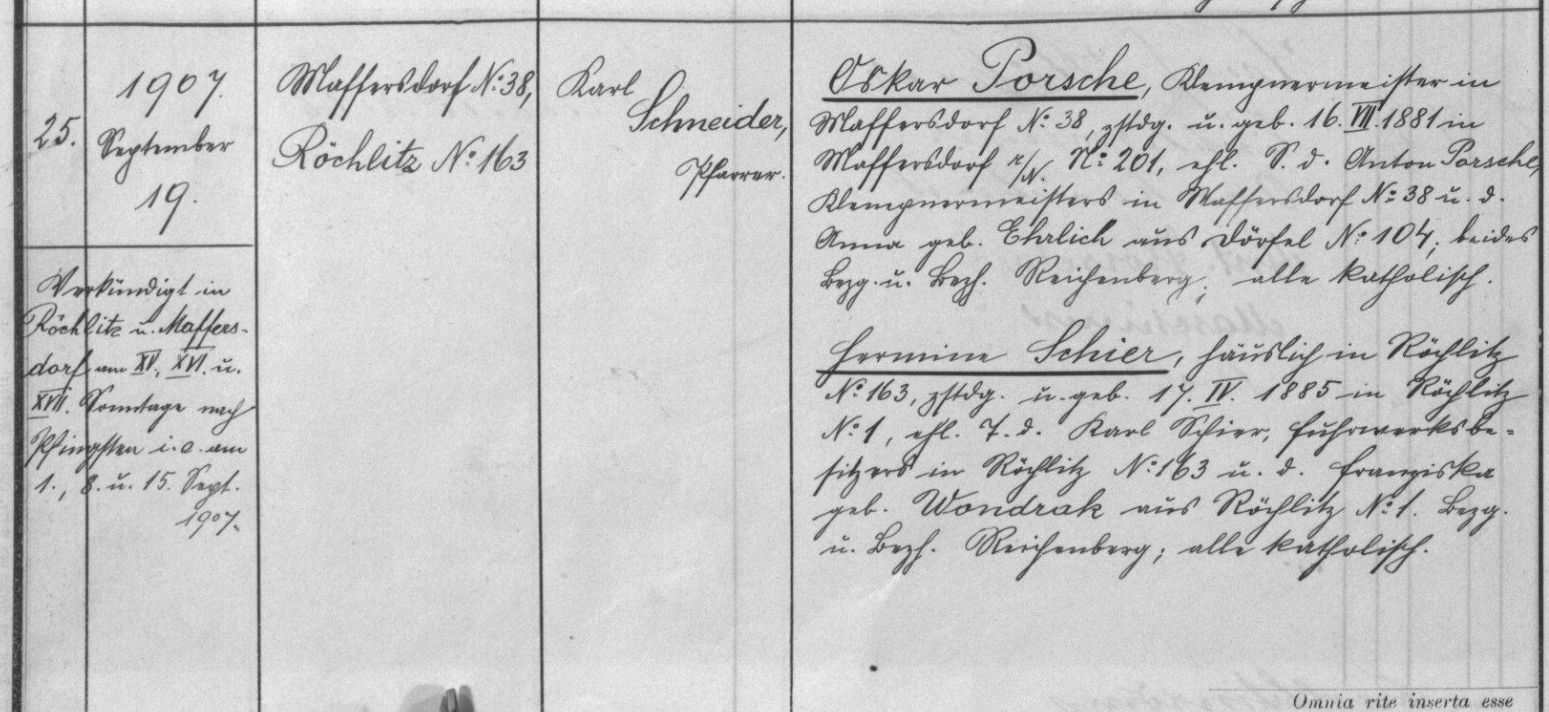 25.
1907.
September
19.
Verkündigt in
Röchlitz u. Maffers-
dorf am XV., XVI. u.
XVII. Sonntage nach
Pfingsten i.e. am
1., 8. u. 15. Sept.
1907.
Maffersdorf No. 38,
Röchlitz No. 163
Karl
Schneider,
Pfarrer.
Oskar Porsche, Klempnermeister in
Maffersdorf No. 38, zstdg. u. geb. 16. VII. 1881 in
Maffersdorf r/N. No. 201, ehl. S. d. Anton Porsche,
Klempnermeisters in Maffersdorf No. 38 u. d.
Anna geb. Ehrlich aus Dörfel No. 104; beides
Bezg. u. Bezh. Reichenberg; alle katholisch.
Hermine Schier, häuslich in Röchlitz
No. 163, zstdg. u. geb. 17. IV. 1885 in Röchlitz
No. 1, ehl. T. d. Karl Schier, Fuhrwerksbe-
sitzers in Röchlitz No. 163 u. d. Franziska
geb. Wondrak aus Röchlitz No. 1. Bezg.
u. Bezh. Reichenberg; alle katholisch.
Omnia rite inserta esse